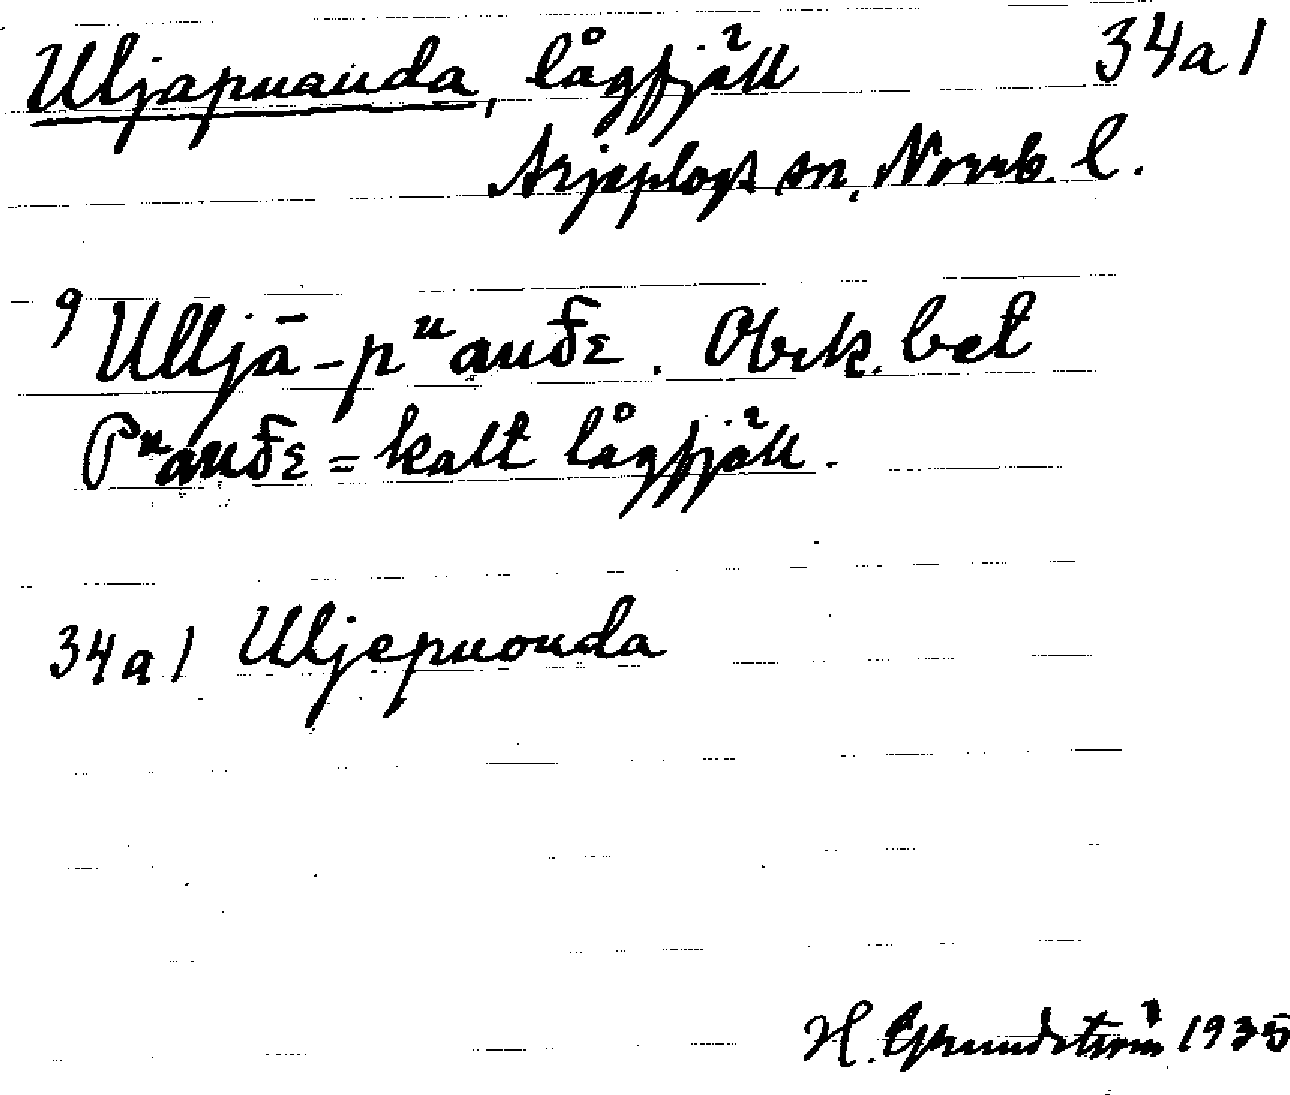 Uljapuauda, lågfjäll 34a1
Arjeplogs sn, Norrb. l.
9 Ulljā-pᵘauđε. Obek. bet
Pᵘauđε = kalt lågfjäll.
34a1 Uljepuouda
H. Grundström 1935